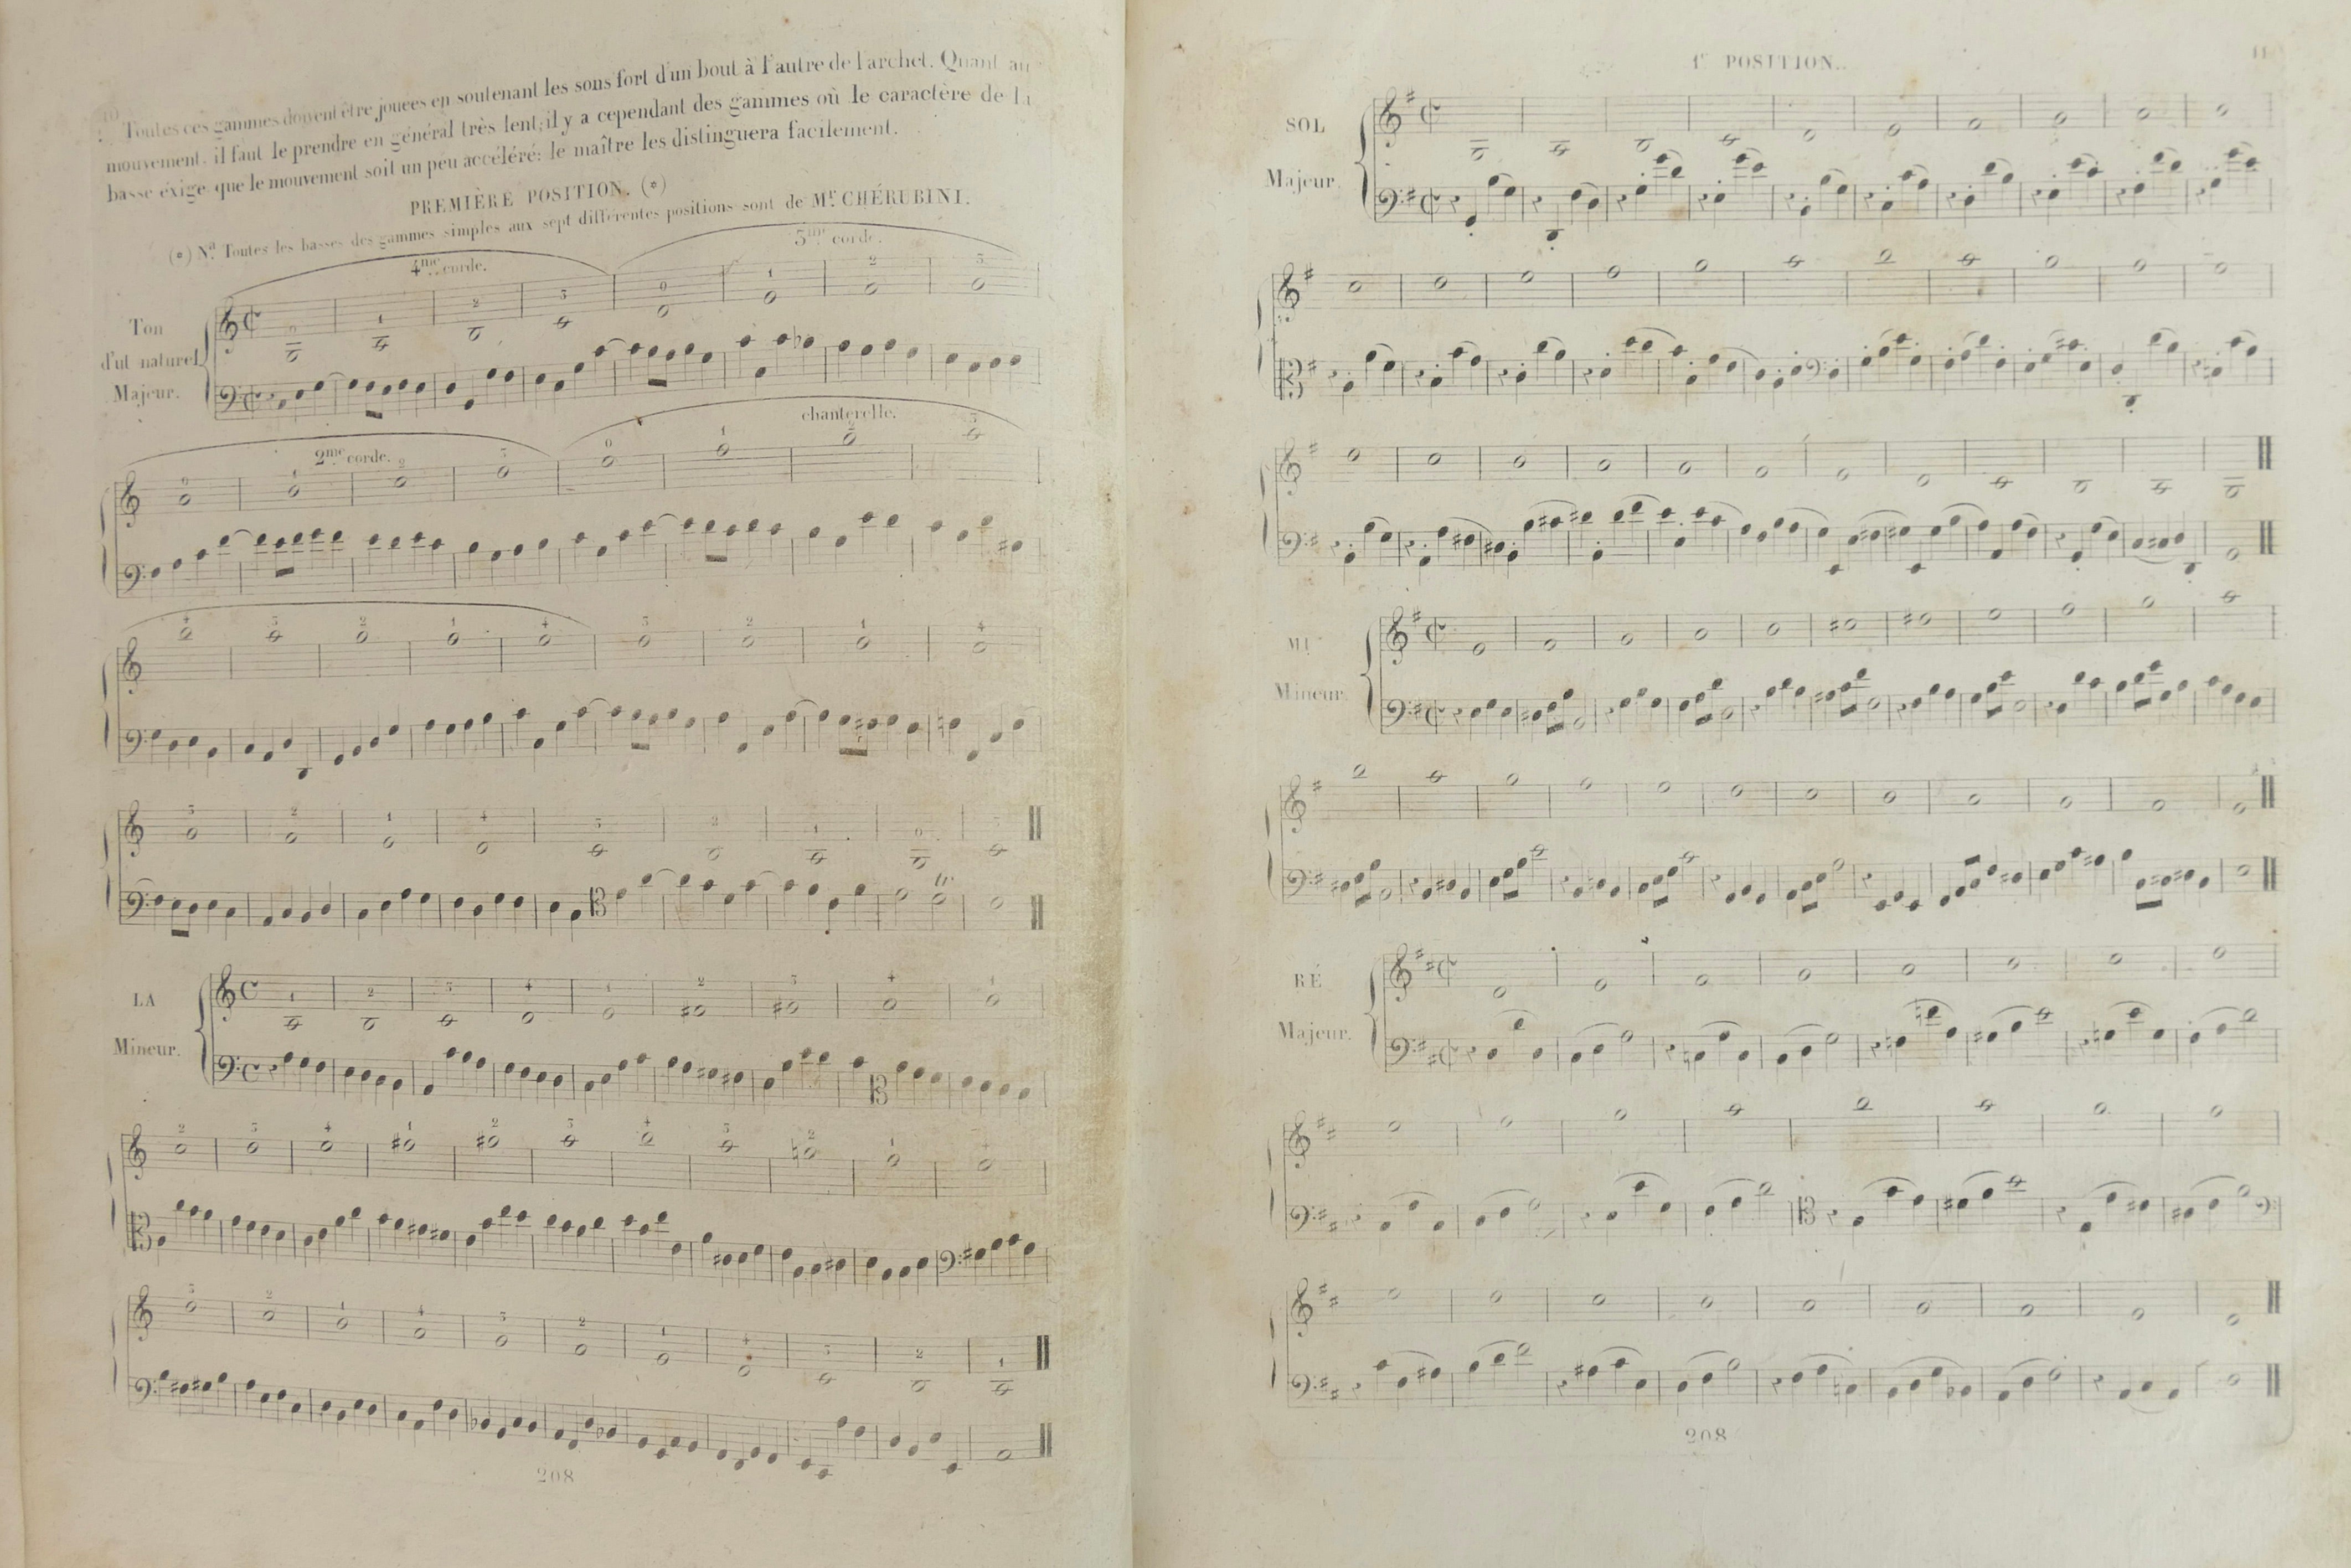 10
Toutes ces gammes doivent être jouées en soutenant les sons fort d'un bout à l'autre de l'archet. Quant au
mouvement, il faut le prendre en général très lent; il y a cependant des gammes où le caractère de la
basse éxige que le mouvement soit un peu accéléré: le maître les distinguera facilement.
PREMIÈRE POSITION. (*)
(*) Nª Toutes les basses des gammes simples aux sept différentes positions sont de Mr. CHÉRUBINI.
4me corde.
3me corde.
0 1 2 3 0 1 2 3
Ton
d'ut naturel
Majeur.
2me corde.
chanterelle.
0 1 2 3 0 1 2 3
4 3 2 1 4 3 2 1 4
3 2 1 4 3 2 1 0 3
tr.
LA
Mineur.
1 2 3 4 1 2 3 4 1
2 3 4 1 2 3 4 3 2 1 4
3 2 1 4 3 2 1 4 3 2 1
208
1re POSITION.
11
SOL
Majeur.
MI
Mineur.
RÉ
Majeur.
208